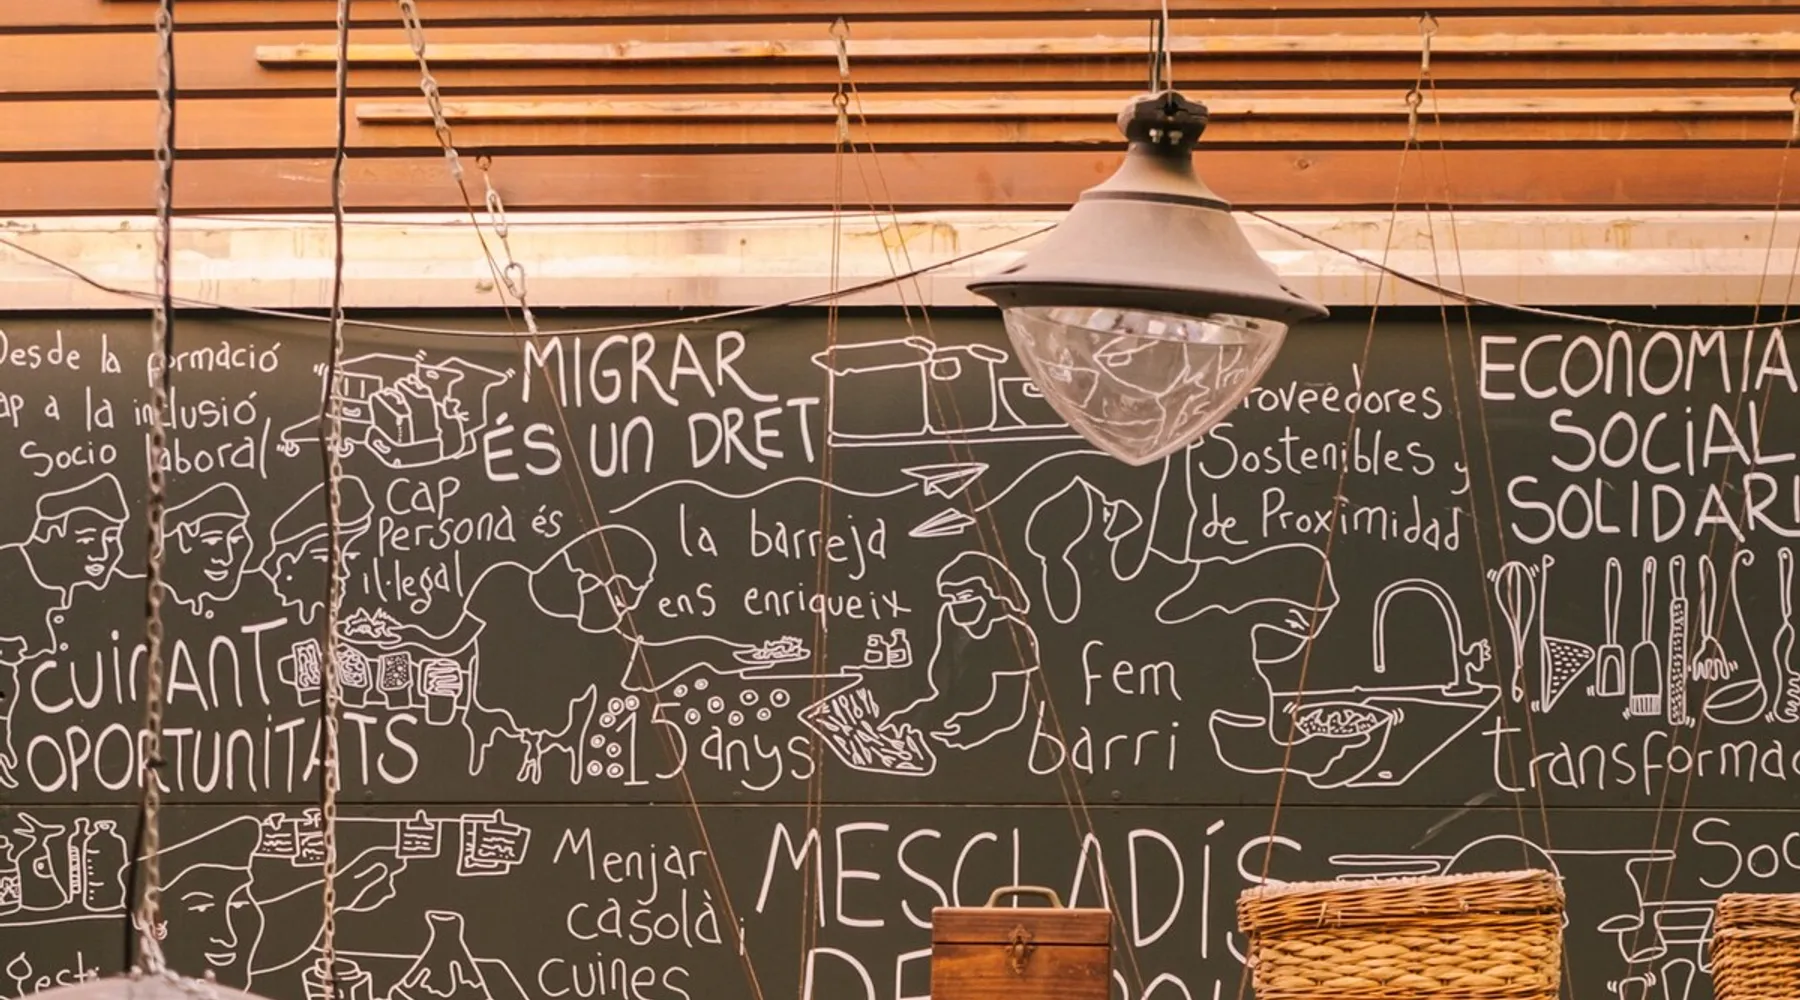 Desde la formació
cap a la inclusió
Socio laboral
MIGRAR
ÉS UN DRET
Proveedores
Sostenibles y
de Proximidad
ECONOMIA
SOCIAL
SOLIDARI
CAP
persona és
il·legal
la barreja
ens enriqueix
CUINANT
OPORTUNITATS
15 anys
fem
barri
transformac
Menjar
casolà i
cuines
MESCLADÍS
Soc
Gesti